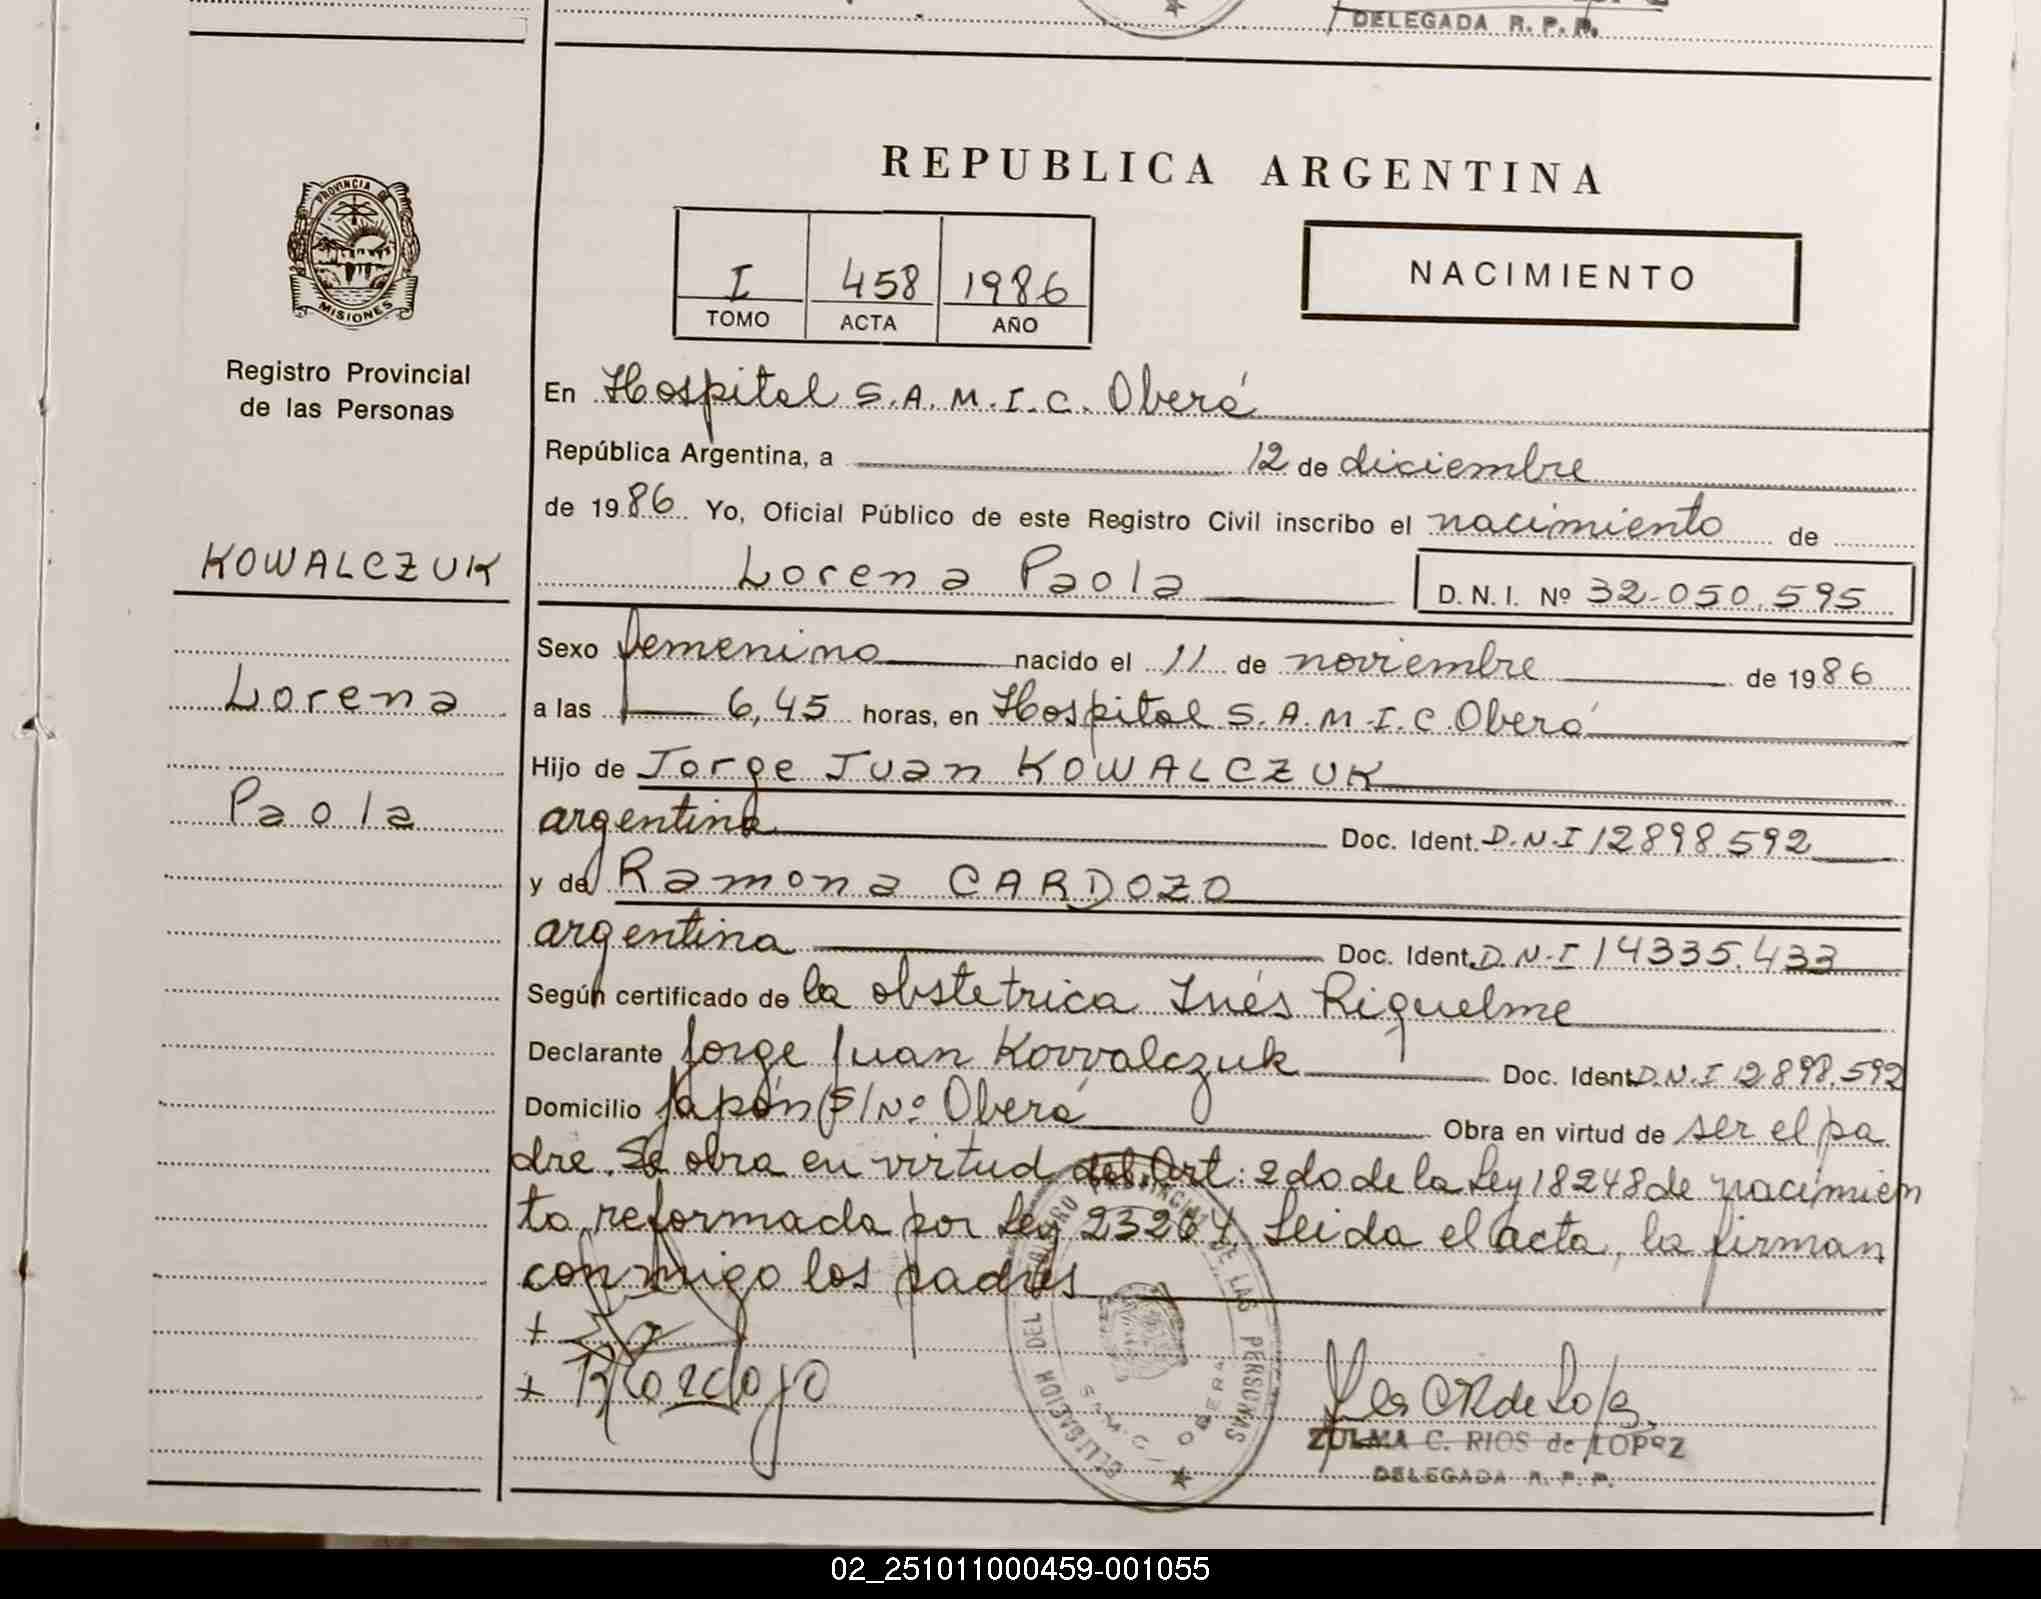 DELEGADA R. P. P.
REPUBLICA ARGENTINA
PROVINCIA DE
MISIONES
I 458 1986
TOMO ACTA AÑO
NACIMIENTO
Registro Provincial
de las Personas
KOWALCZUK
Lorena
Paola
En Hospital S.A.M.I.C. Oberá
República Argentina, a 12 de diciembre
de 1986 Yo, Oficial Público de este Registro Civil inscribo el nacimiento de
Lorena Paola D.N.I. Nº 32.050.595
Sexo femenino nacido el 11 de noviembre de 1986
a las 6,45 horas, en Hospital S.A.M.I.C. Oberá
Hijo de Jorge Juan KOWALCZUK
argentino Doc. Ident. D.N.I 12898.592
y de Ramona CARDOZO
argentina Doc. Ident. D.N.I 14335.433
Según certificado de la obstetrica Inés Riquelme
Declarante Jorge Juan Kowalczuk Doc. Ident. D.N.I 12.898.592
Domicilio Japón S/Nº Oberá Obra en virtud de ser el pa
dre. Se obra en virtud del Art: 2do de la Ley 18248 de nacimien
to reformada por Ley 23264. Leida el acta, la firman
conmigo los padres
+
+ R Cardozo
DELEGACION DEL REGISTRO PROVINCIAL DE LAS PERSONAS
S.A.M.I.C. OBERA
ZULMA C. RIOS de LOPEZ
DELEGADA R. P. P.
02_251011000459-001055